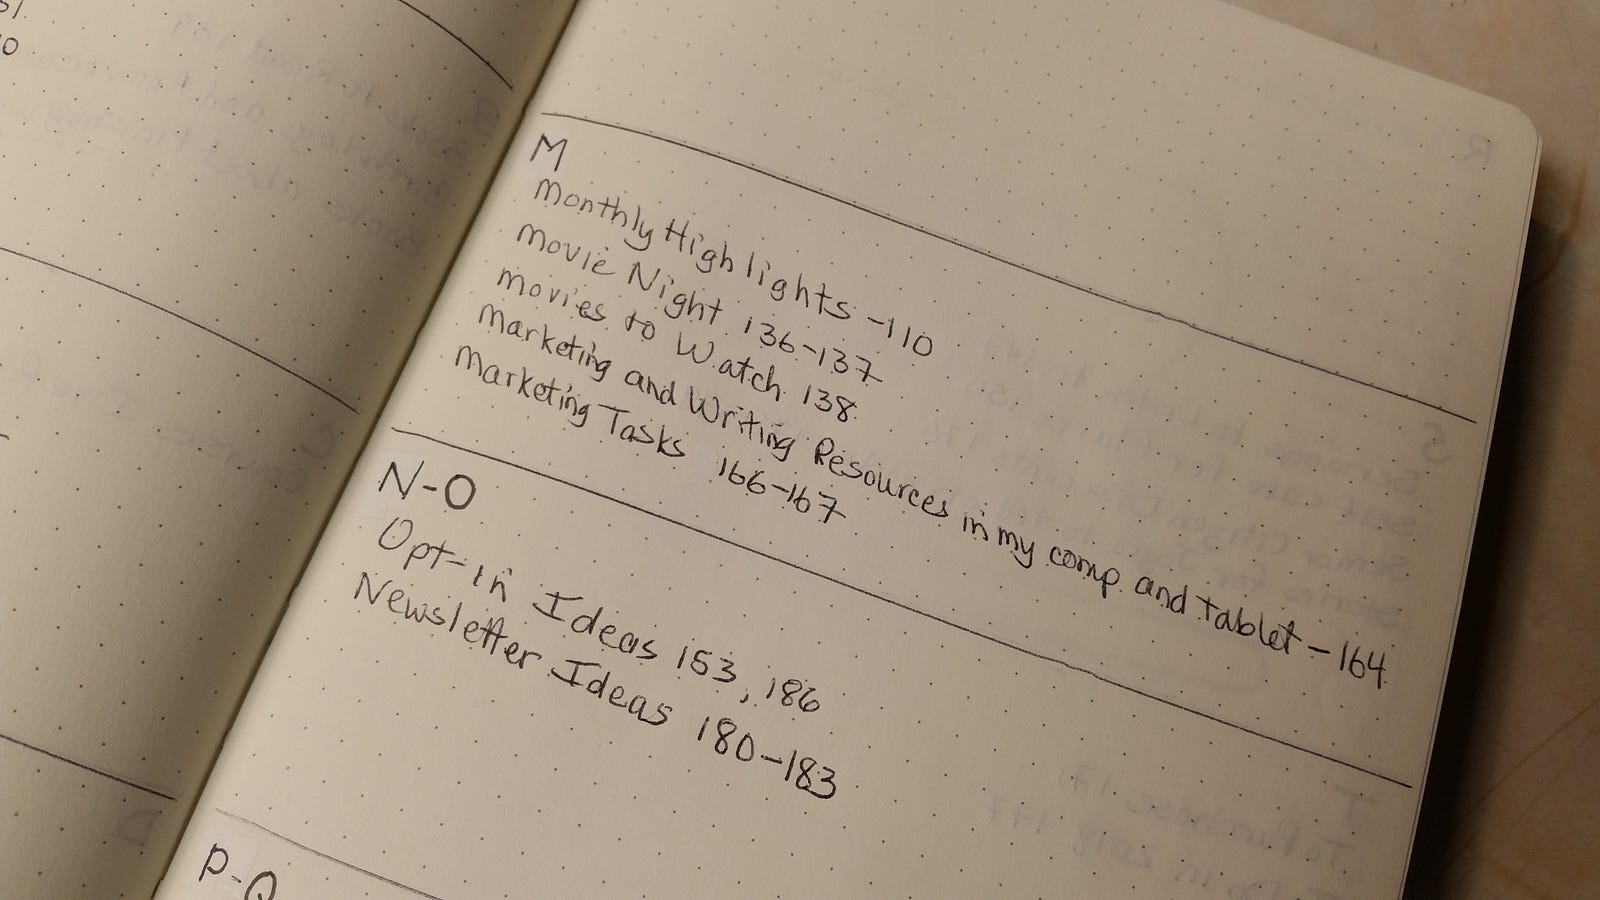 M
Monthly Highlights -110
Movie Night 136-137
Movies to Watch 138
Marketing and Writing Resources in my comp and tablet - 164
Marketing Tasks 166-167
N-O
Opt-in Ideas 153, 186
Newsletter Ideas 180-183
P-Q